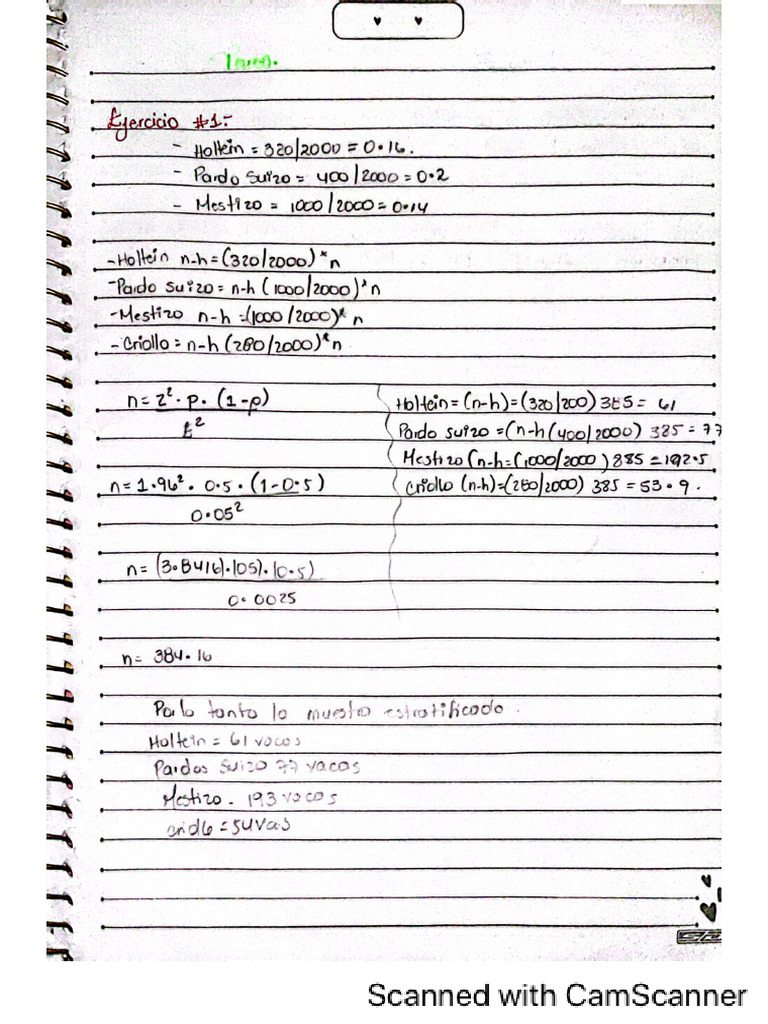 Tarea.
Ejercicio #1:-
- Holtein = 320/2000 = 0.16.
- Pardo suizo = 400/2000 = 0.2
- Mestizo = 1000/2000 = 0.14
- Holtein n-h = (320/2000)*n
- Pardo suizo = n-h (1000/2000)*n
- Mestizo n-h = (1000/2000)* n
- Criollo = n-h (280/2000)*n
n = z². p. (1-p)
E²
n = 1.96². 0.5. (1-0.5)
0.05²
n = (3.8416).(05).(0.5)
0.0025
n = 384.16
Holtein = (n-h) = (320/200) 385 = 61
Pardo suizo = (n-h (400/2000) 385 = 77
Mestizo (n-h = (1000/2000) 385 = 192.5
Criollo (n-h) = (280/2000) 385 = 53.9.
Po lo tanto la muestra estratificado.
Holtein = 61 vacas
Pardos suizo 77 vacas
Mestizo - 193 vacas
criollo = 54 vas
Scanned with CamScanner